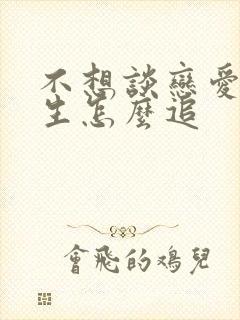 不想談戀愛
生怎麼追
會飛的鴻兒